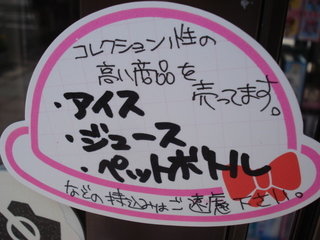 コレクション性の
高い商品を
売ってます。
・アイス
・ジュース
・ペットボトル
などの持込みはご遠慮下さい。